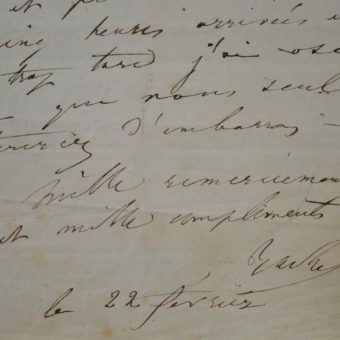 et pe
cinq heures arrivés
trop tard j'ai ose
que nous seul
d'embarras –
Mille remerciemen
et mille compliments
le 22 février